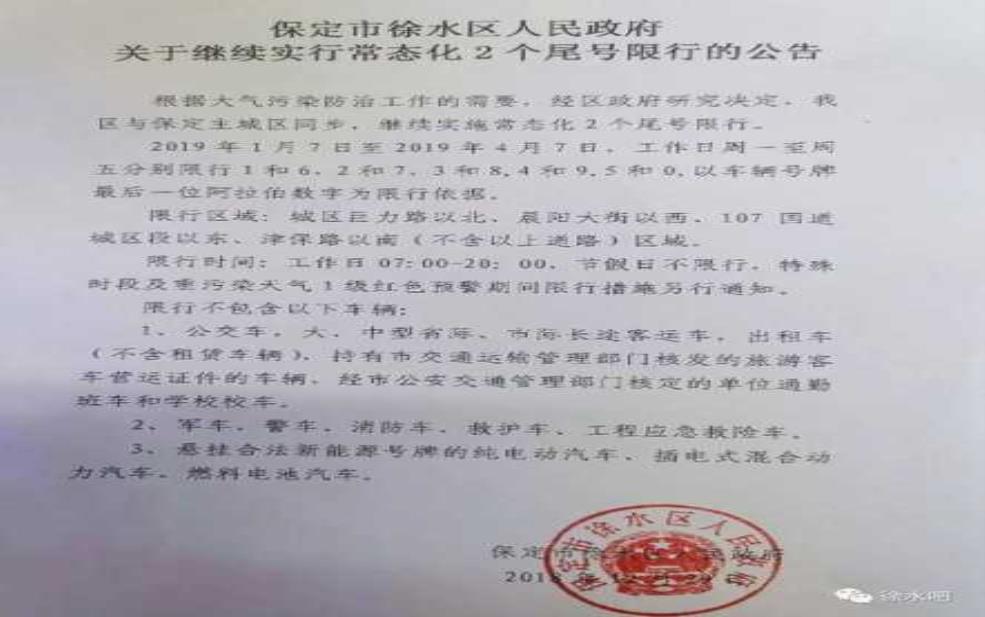 保定市徐水区人民政府
关于继续实行常态化2个尾号限行的公告
根据大气污染防治工作的需要，经区政府研究决定，我
区与保定主城区同步，继续实施常态化2个尾号限行。
2019年1月7日至2019年4月7日，工作日周一至周
五分别限行1和6，2和7，3和8,4和9,5和0,以车辆号牌
最后一位阿拉伯数字为限行依据。
限行区域：城区巨力路以北、晨阳大街以西、107国道
城区段以东、津保路以南（不含以上道路）区域。
限行时间：工作日07:00-20：00，节假日不限行，特殊
时段及重污染天气1级红色预警期间限行措施另行通知。
限行不包含以下车辆：
1、公交车，大、中型省际、市际长途客运车，出租车
（不含租赁车辆），持有市交通运输管理部门核发的旅游客
车营运证件的车辆，经市公安交通管理部门核定的单位通勤
班车和学校校车。
2、军车、警车、消防车、救护车、工程应急救险车。
3、悬挂合法新能源号牌的纯电动汽车、插电式混合动
力汽车、燃料电池汽车。
保定市徐水区人民政府
2018年12月29日
保定市徐水区人民政府
徐水吧